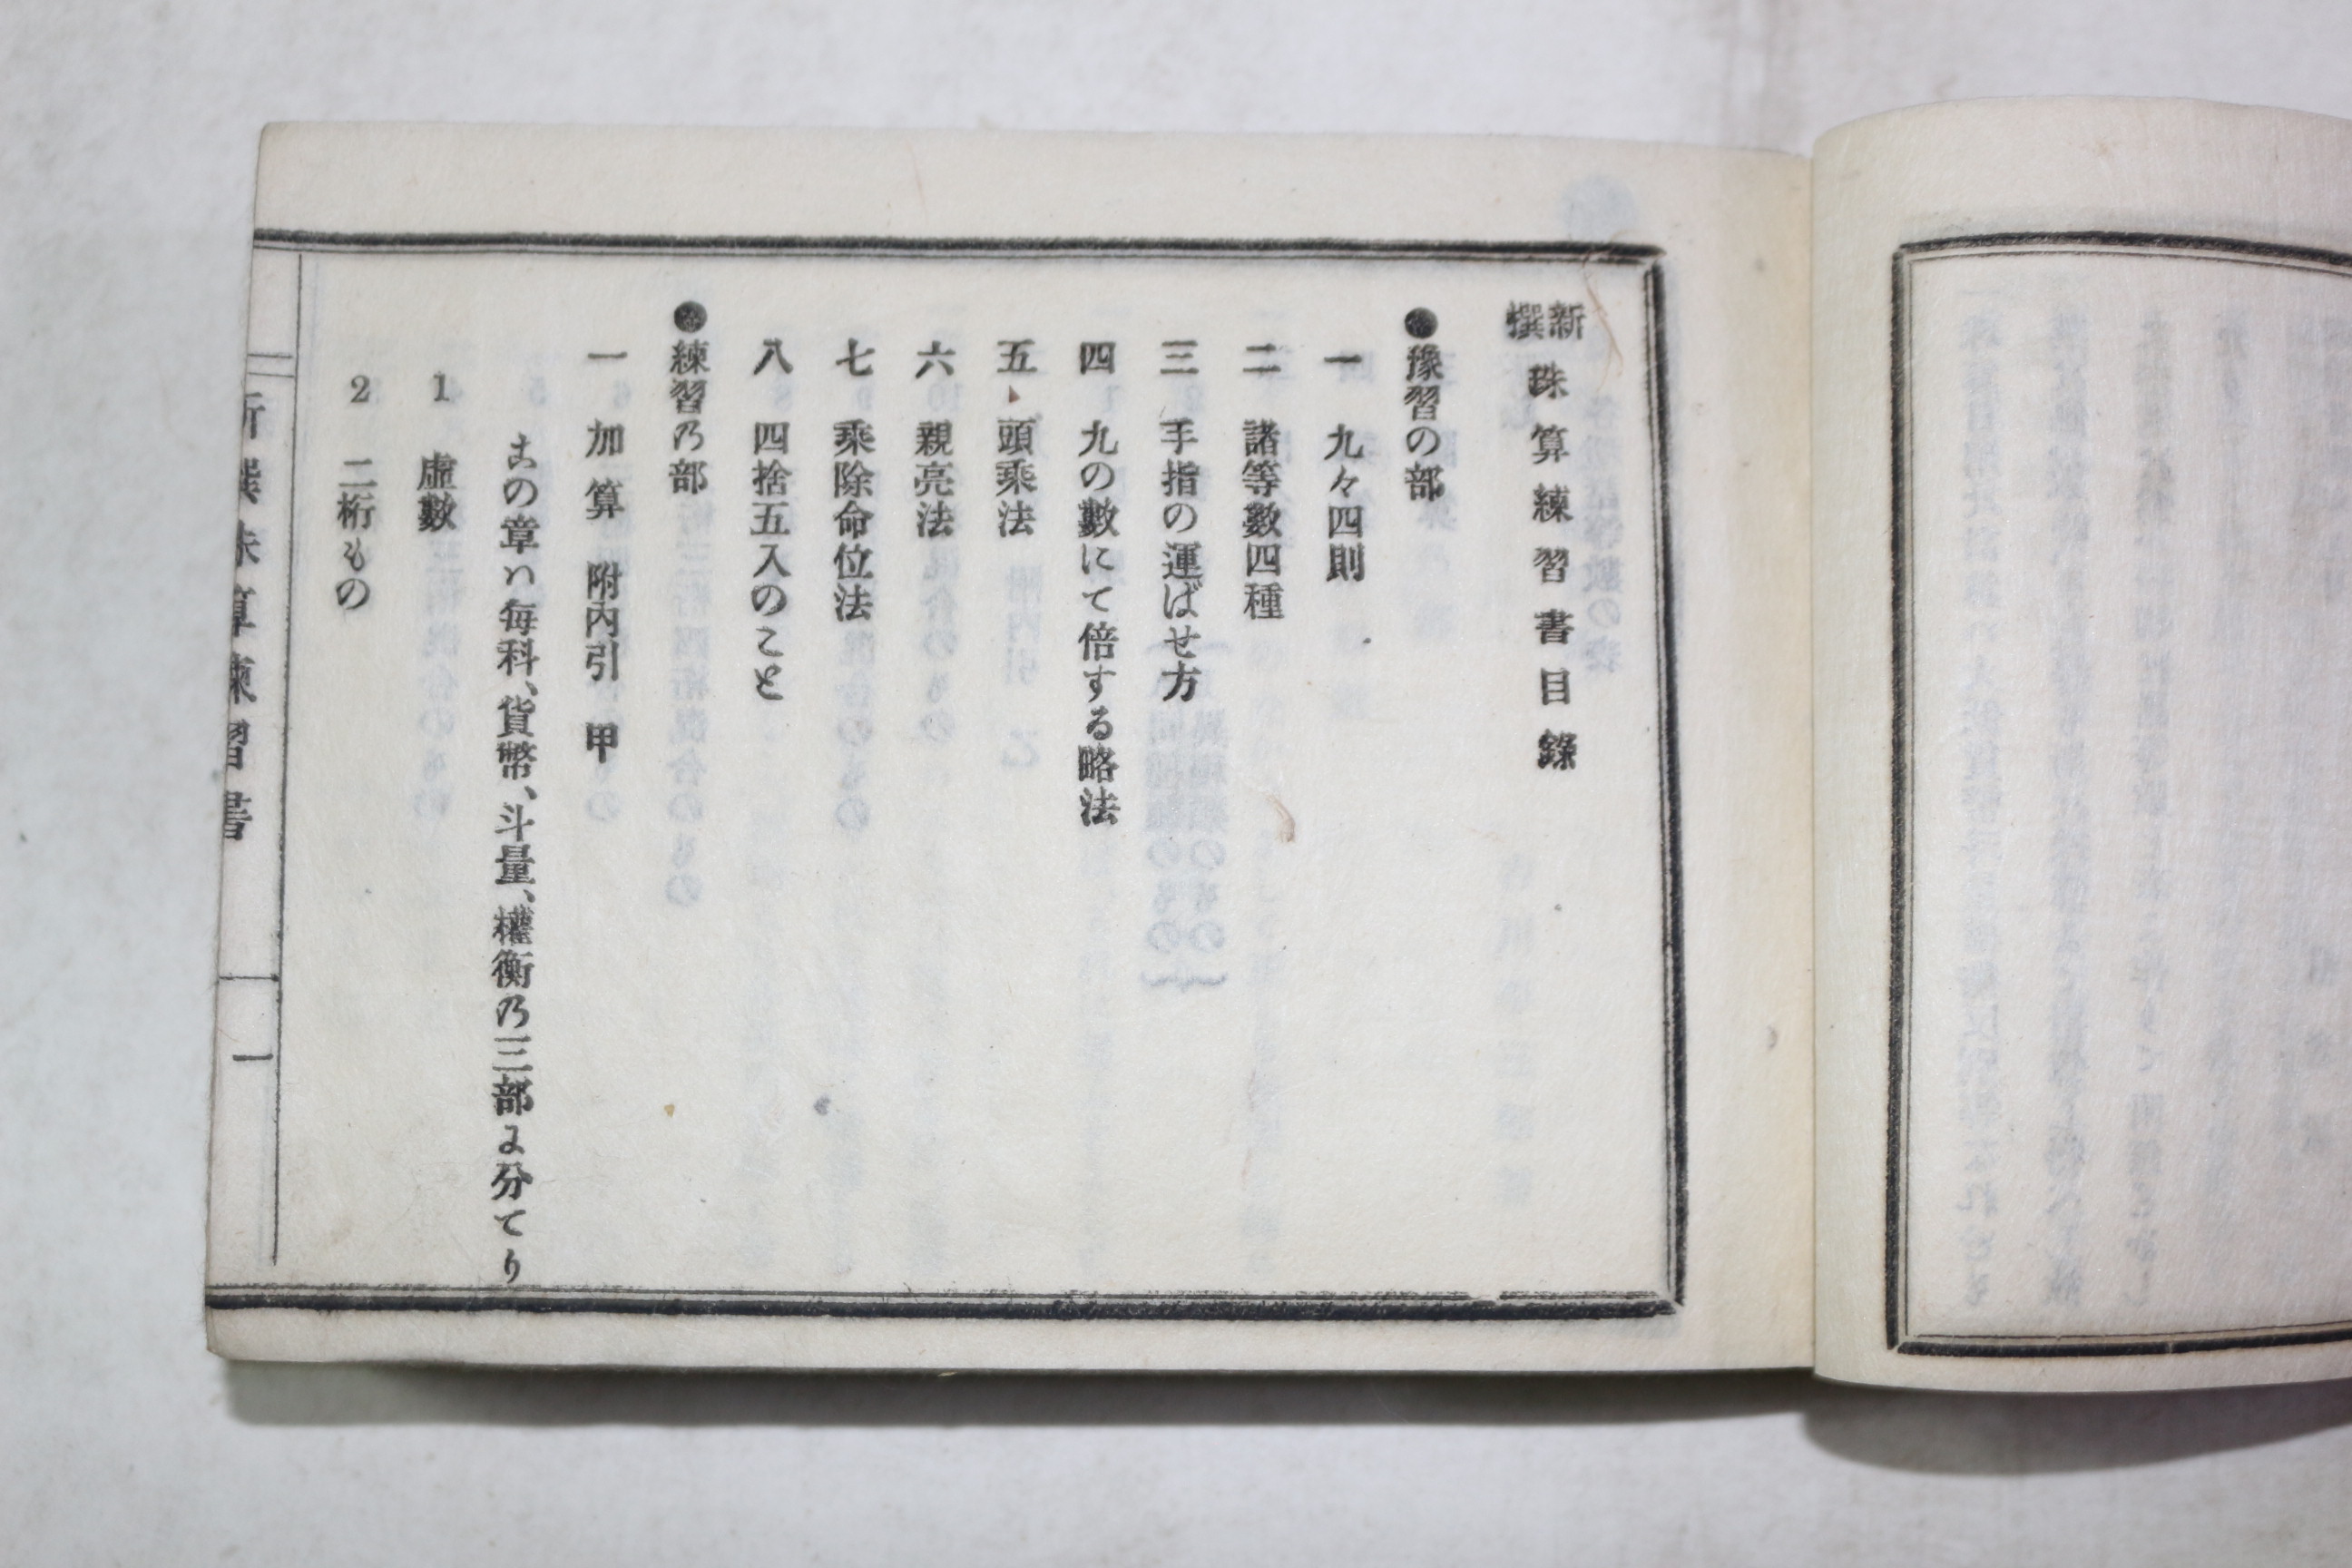 新撰珠算練習書目錄
●豫習の部
一 九々四則
二 諸等數四種
三 手指の運ばせ方
四 九の數にて倍する略法
五 頭乘法
六 親亮法
七 乘除命位法
八 四捨五入のこと
●練習乃部
一 加算 附內引 甲
古の章ハ每科、貨幣、斗量、權衡乃三部よ分てり
1 虛數
2 二桁もの
新撰珠算練習書 一